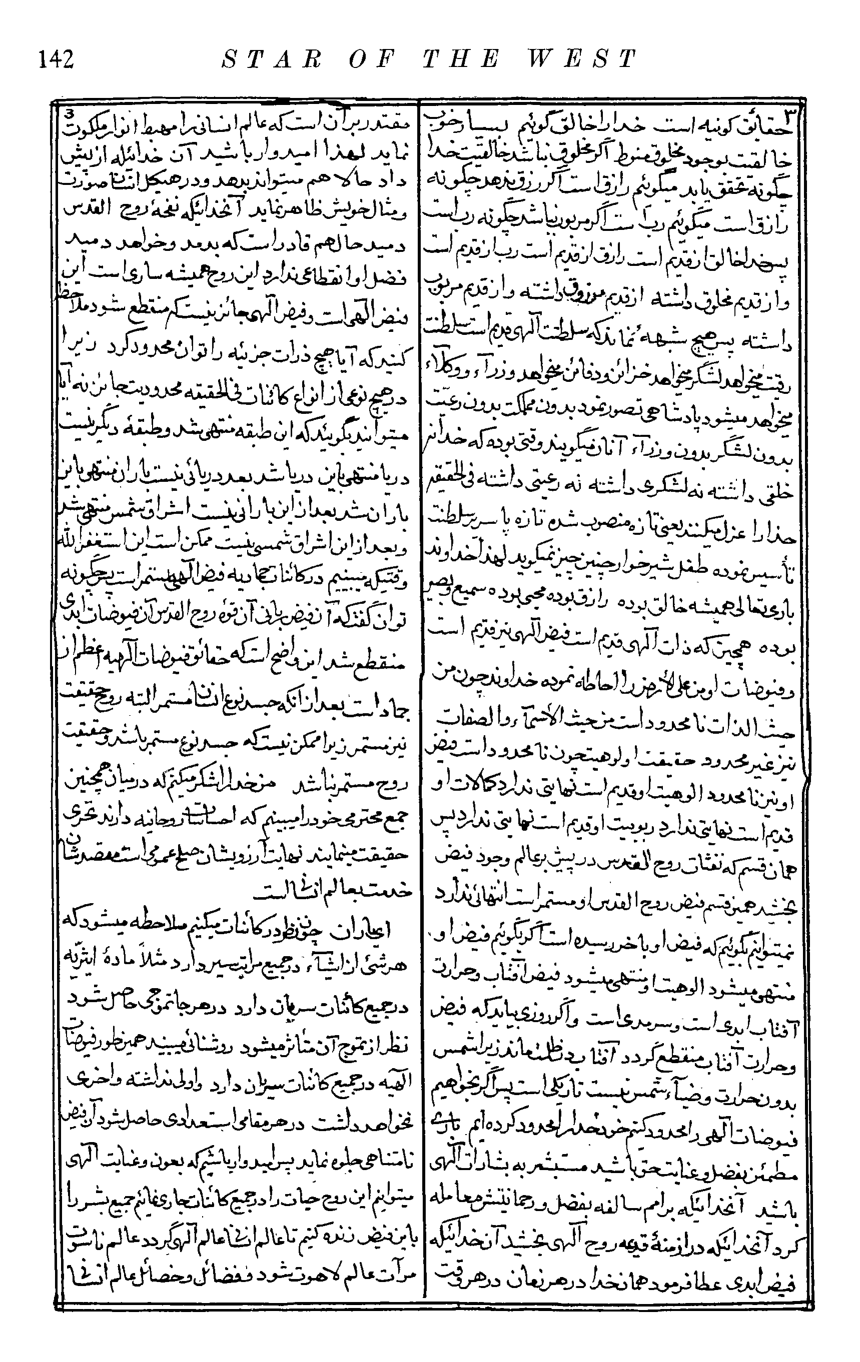 142
STAR OF THE WEST
۳
حقائق کونیه است خدا را خالق گوئیم بسیار خوب
خالقیت بوجود مخلوق منوط اگر مخلوقی نباشد خالقیت خدا
چگونه تحقق یابد میگوئیم رازق است اگر رزق ندهد چگونه
رازق است میگوئیم رب است اگر مربوبی نباشد چگونه رب است
پس خدا خالق از قدیم است رازق از قدیم است رب از قدیم است
و از قدیم مخلوق داشته از قدیم مرزوق داشته و از قدیم مربوب
داشته پس هیچ شبهه نماند که سلطنت آلهی قدیم است سلطنت
رعیت میخواهد لشگر میخواهد خزائن و دفائن میخواهد وزرآء و وکلاء
میخواهد میشود پادشاهی تصور نمود بدون مملکت بدون رعیت
بدون لشگر بدون وزرآء آنان میگویند وقتی بوده که خدا نه
خلقی داشته نه لشکری داشته نه رعیتی داشته فی الحقیقه
خدا را عزل میکنند یعنی تازه منصوب شده تازه با سریر سلطنت
تأسیس نموده طفل شیرخوار چنین چیز نمیگوید لهذا خداوند
باری تعالی همیشه خالق بوده رازق بوده محیی بوده سمیع و بصیر
بوده همچنین که ذات آلهی قدیم است فیض آلهی نیز قدیم است
و فیوضات او من علی الارض را احاطه نموده خداوند چون من
حیث الذات نامحدود است من حیث الاسمآء و الصفات
نیز غیر محدود حقیقت اولوهیت چون نامحدود است فیض
او نیز نامحدود الوهیت او قدیم است نهایتی ندارد کمالات او
قدیم است نهایتی ندارد ربوبیت او قدیم است نهایتی ندارد پس
همان قسم که نفثات روح القدس در پیش بر عالم وجود فیض
بخشید همین قسم فیض روح القدس او مستمر است انتهائی ندارد
نمیتوانیم بگوئیم که فیض او بآخر رسیده است اگر بگوئیم فیض او
منتهی میشود الوهیت او منتهی میشود فیض آفتاب و حرارت
آفتاب ابدی است و سرمدی است و اگر روزی بیاید که فیض
و حرارت آفتاب منقطع گردد آفتاب در ظلمت ماند زیرا شمس
بدون حرارت و ضیآء شمس نیست تاریکی است پس اگر بخواهیم
فیوضات آلهی را محدود کنیم خود خدا را محدود کرده ایم باری
مطمئن بفضل و عنایت حق باشید مستبشر به بشارات آلهی
باشید آنخدائیکه بر امم سالفه بفضل و رحمانیتش معامله
کرد آنخدائیکه در ازمنهٔ قدیمه روح آلهی بخشید آنخدائیکه
فیض ابدی عطا فرمود همان خدا در هر زمان در هر وقت
3
مقتدر بر آن است که عالم انسانی را مهبط انوار ملکوت
نماید لهذا امیدوار باشید آن خدائیکه از پیش
داد حالا هم میتواند بدهد و در هیکل انسان صورت
و مثال خویش ظاهر نماید آنخدائیکه نفخهٔ روح القدس
دمید حال هم قادر است که بدمد و خواهد دمید
فضل او انقطاعی ندارد این روح همیشه ساری است این
فیض الهی است و فیض آلهی جائز نیست که منقطع شود ملاحظه
کنید که آیا هیچ ذرات جزئیه را توان محدود کرد زیرا
در هیچ نوعی از انواع کائنات فی الحقیقه محدودیت جائز نه آیا
میتوانید بگوئید که این طبقه منتهی شد و طبقهٔ دیگر نیست
دریا منتهی باین دریا شد بعد دریائی نیست باران منتهی باین
باران شد بعد از این بارانی نیست اشراق شمس منتهی شد
و بعد از این اشراق شمسی نیست ممکن است این استغفر الله
وقتیکه میبینیم در کائنات جمادیه فیض آلهی مستمر است پس چگونه
توان گفت که آن فیض ربانی آن قوهٔ روح القدس آن فیوضات ابدی
منقطع شد این واضح است که حقائق فیوضات آلهیه اعظم از
جماد است بعد از آنکه جسد نوع انسان مستمر البته روح حقیقت
نیز مستمر زیرا ممکن نیست که جسد نوع مستمر باشد و حقیقت
روح مستمر نباشد من خدا را شکر میکنم که در میان همچنین
جمع محترمی خود را میبینم که احساسات روحانیه دارند تحری
حقیقت مینمایند نهایت آرزویشان صلح عمومی است مقصدشان
خدمت بعالم انسانی است
ای یاران چون نظر در کائنات میکنیم ملاحظه میشود که
هر شئی از اشیآء در جمیع مراتب سیر دارد مثلاً مادهٔ اثیریه
در جمیع کائنات سریان دارد در هر جا تموجی حاصل شود
نظر از تموج آن متأثر میشود روشنائی میبیند همینطور فیوضات
الهیه در جمیع کائنات سریان دارد و اولی نداشته و آخری
نخواهد داشت در هر مقامی استعدادی حاصل شود آن فیض
نامتناهی جلوه نماید پس امیدوار باشیم که بعون و عنایت آلهی
میتوانیم این روح حیات را در جمیع کائنات جاری نمائیم جمیع بشر را
باین فیض زنده کنیم تا عالم انسانی عالم آلهی گردد عالم ناسوت
مرآت عالم لاهوت شود و فضائل و خصائل عالم انسانی